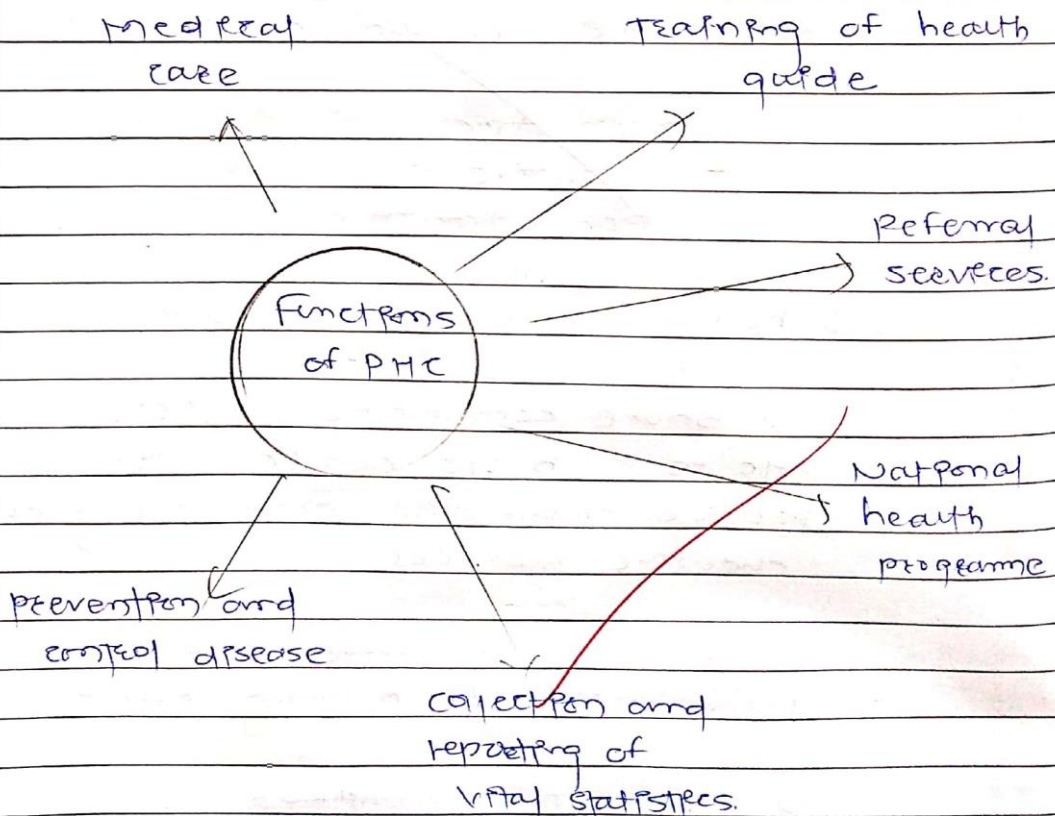 Medical
care
Training of health
guide
Referral
services.
Functions
of PHC
National
health
programme
prevention and
control disease
collection and
reporting of
vital statistics.